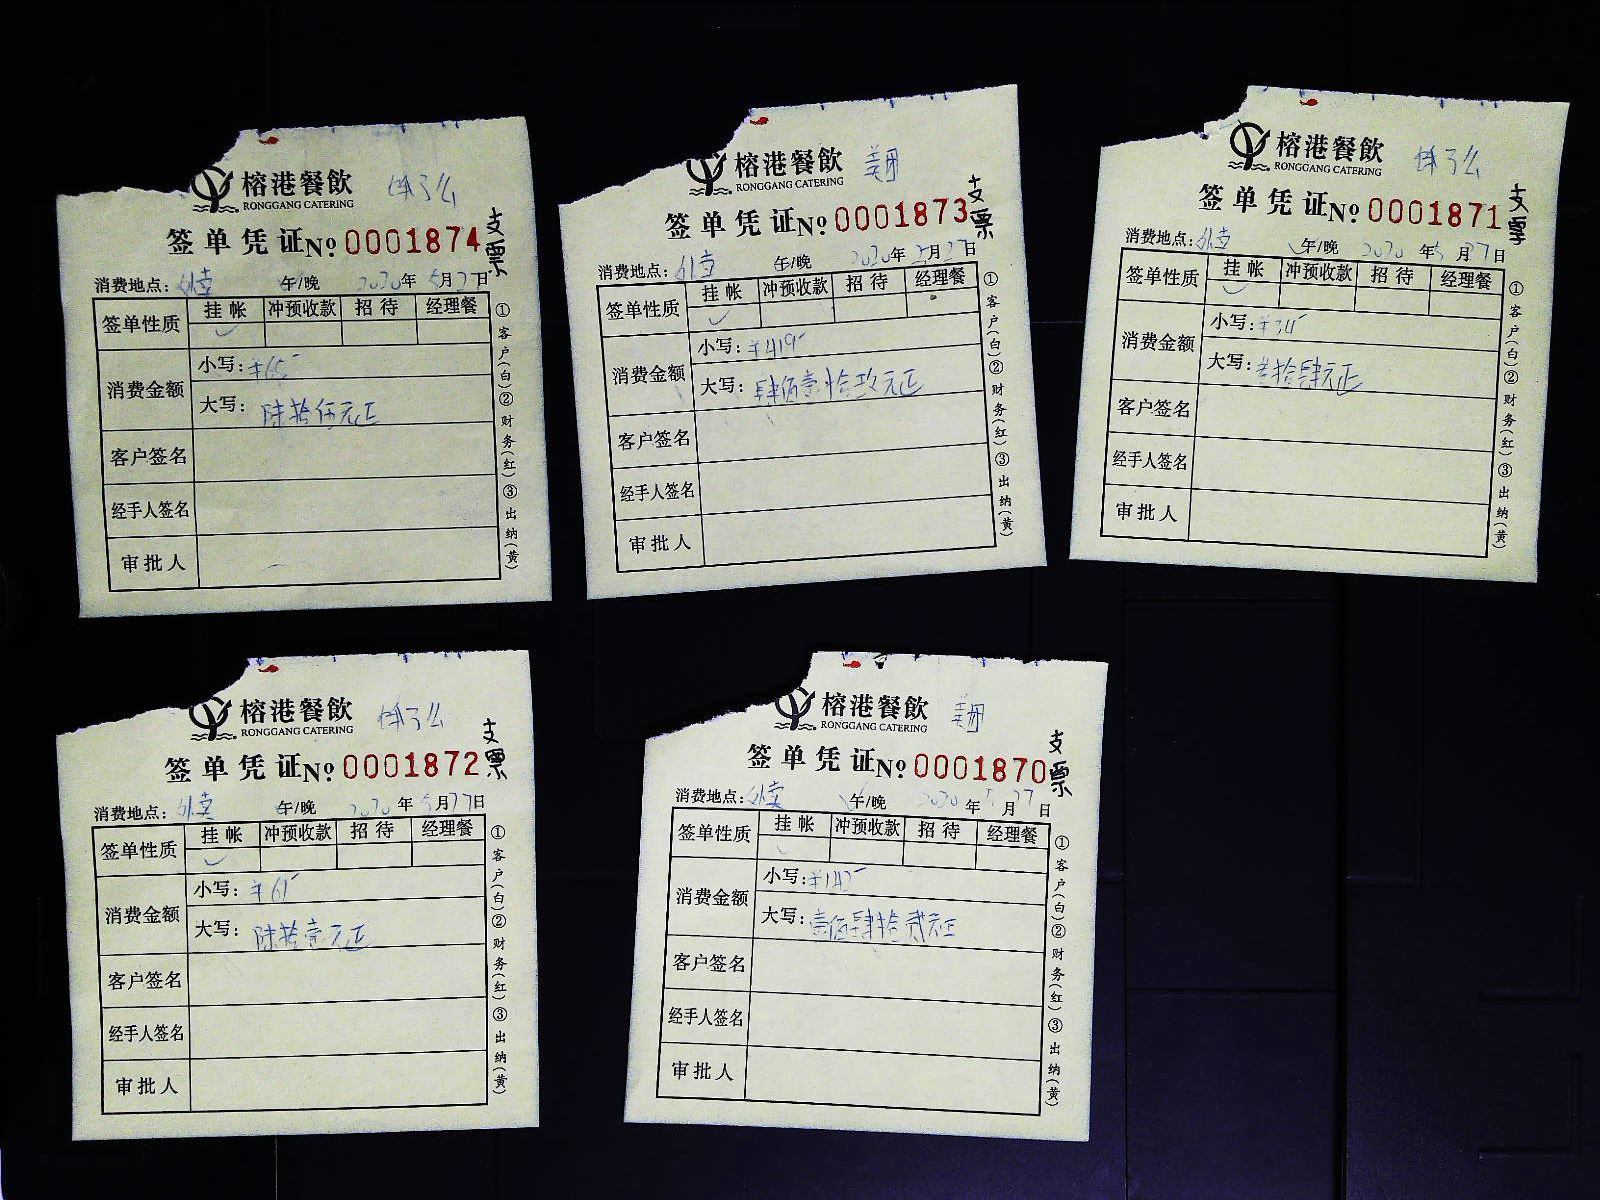 榕港餐飲 饿了么
RONGGANG CATERING
签单凭证 № 0001874 支票
消费地点：外卖 午/晚 2020年5月27日
签单性质 挂帐 冲预收款 招待 经理餐
消费金额 小写：¥65-
大写：陆拾伍元正
客户签名
经手人签名
审批人
①客户(白)②财务(红)③出纳(黄)
榕港餐飲 美团
RONGGANG CATERING
签单凭证 № 0001873 支票
消费地点：外卖 午/晚 2020年5月27日
签单性质 挂帐 冲预收款 招待 经理餐
消费金额 小写：¥419-
大写：肆佰壹拾玖元正
客户签名
经手人签名
审批人
①客户(白)②财务(红)③出纳(黄)
榕港餐飲 饿了么
RONGGANG CATERING
签单凭证 № 0001871 支票
消费地点：外卖 午/晚 2020年5月27日
签单性质 挂帐 冲预收款 招待 经理餐
消费金额 小写：¥34-
大写：叁拾肆元正
客户签名
经手人签名
审批人
①客户(白)②财务(红)③出纳(黄)
榕港餐飲 饿了么
RONGGANG CATERING
签单凭证 № 0001872 支票
消费地点：外卖 午/晚 2020年5月27日
签单性质 挂帐 冲预收款 招待 经理餐
消费金额 小写：¥61-
大写：陆拾壹元正
客户签名
经手人签名
审批人
①客户(白)②财务(红)③出纳(黄)
榕港餐飲 美团
RONGGANG CATERING
签单凭证 № 0001870 支票
消费地点：外卖 午/晚 2020年5月27日
签单性质 挂帐 冲预收款 招待 经理餐
消费金额 小写：¥142-
大写：壹佰肆拾贰元正
客户签名
经手人签名
审批人
①客户(白)②财务(红)③出纳(黄)